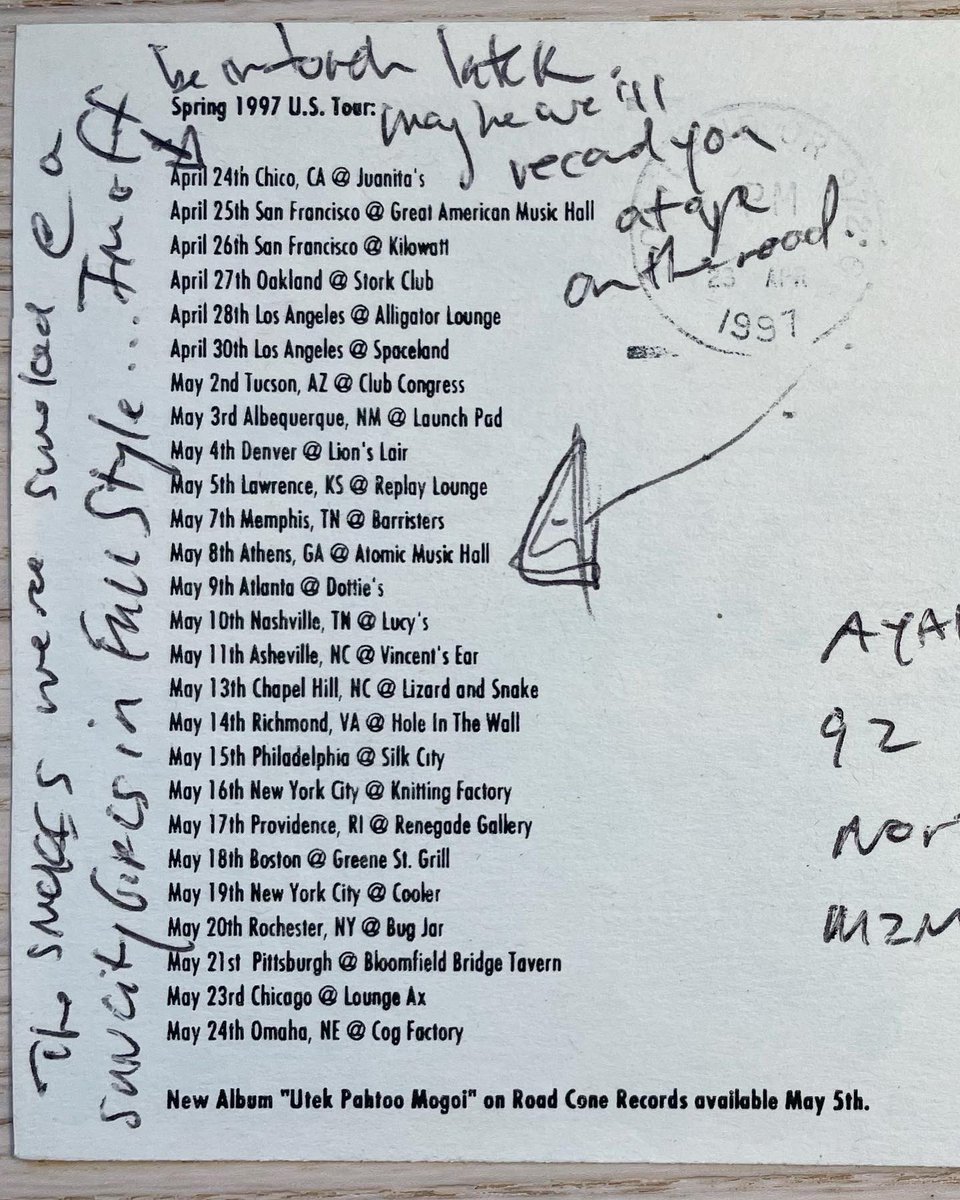 be in touch later.
Spring 1997 U.S. Tour:
maybe we'll
record you
a tape
on the road.
April 24th Chico, CA @ Juanita's
April 25th San Francisco @ Great American Music Hall
April 26th San Francisco @ Kilowatt
April 27th Oakland @ Stork Club
April 28th Los Angeles @ Alligator Lounge
April 30th Los Angeles @ Spaceland
May 2nd Tucson, AZ @ Club Congress
May 3rd Albequerque, NM @ Launch Pad
May 4th Denver @ Lion's Lair
May 5th Lawrence, KS @ Replay Lounge
May 7th Memphis, TN @ Barristers
May 8th Athens, GA @ Atomic Music Hall
May 9th Atlanta @ Dottie's
May 10th Nashville, TN @ Lucy's
May 11th Asheville, NC @ Vincent's Ear
May 13th Chapel Hill, NC @ Lizard and Snake
May 14th Richmond, VA @ Hole In The Wall
May 15th Philadelphia @ Silk City
May 16th New York City @ Knitting Factory
May 17th Providence, RI @ Renegade Gallery
May 18th Boston @ Greene St. Grill
May 19th New York City @ Cooler
May 20th Rochester, NY @ Bug Jar
May 21st Pittsburgh @ Bloomfield Bridge Tavern
May 23rd Chicago @ Lounge Ax
May 24th Omaha, NE @ Cog Factory
New Album "Utek Pahtoo Mogoi" on Road Cone Records available May 5th.
The snakes were smoked @ a
Sun City Girls in Full Style...
23 APR
1997
AYA
92
Nor
M2M